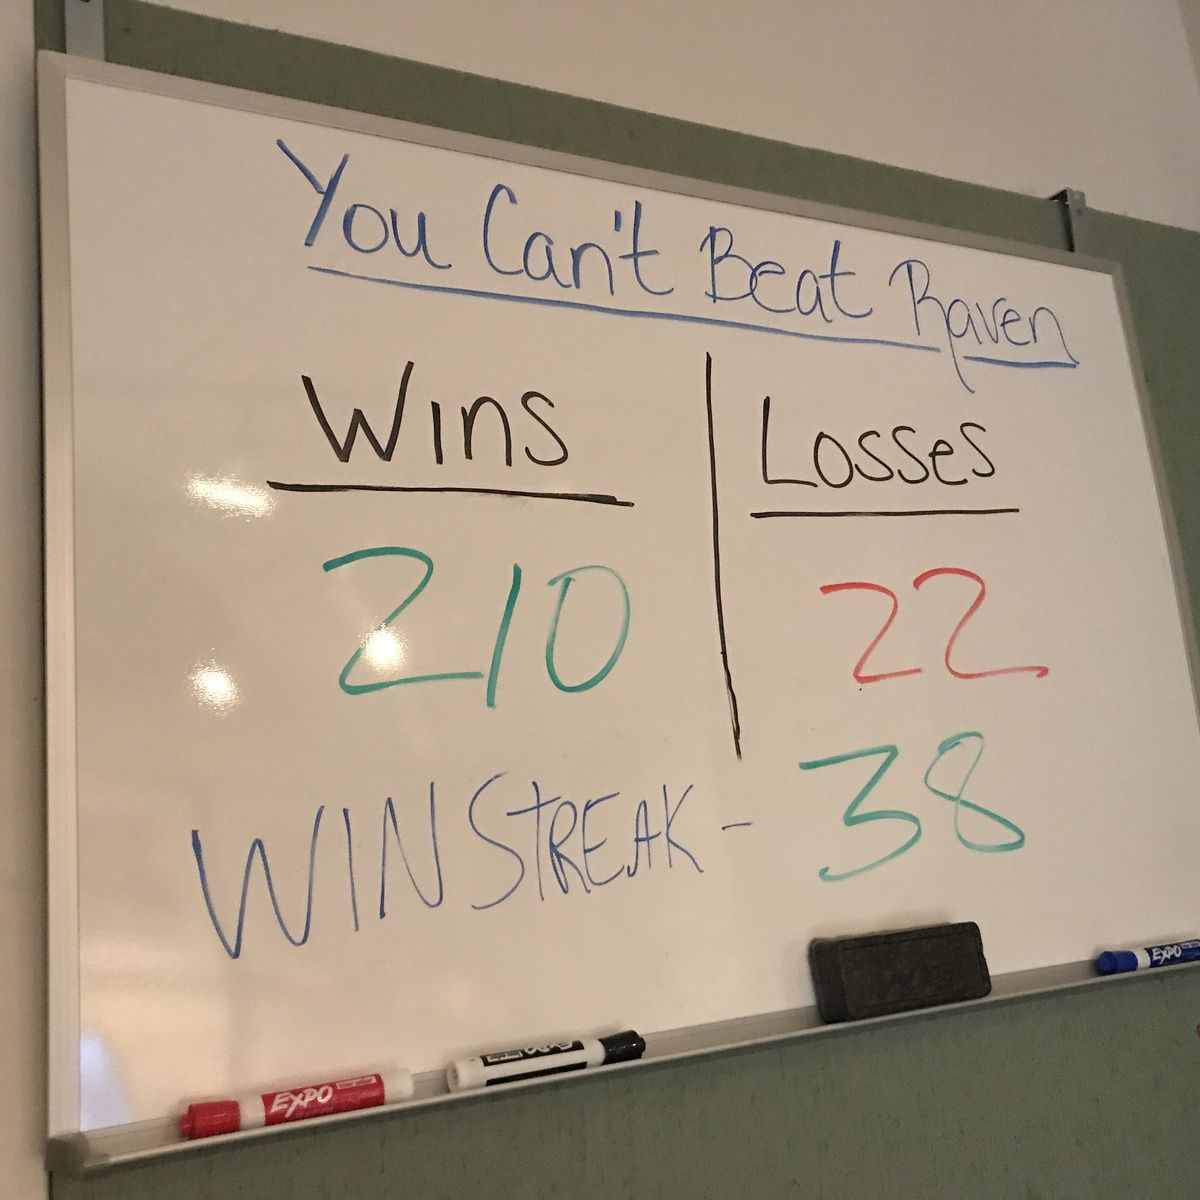 You Can't Beat Raven
Wins
Losses
210
22
WINSTREAK - 38
EXPO
EXPO